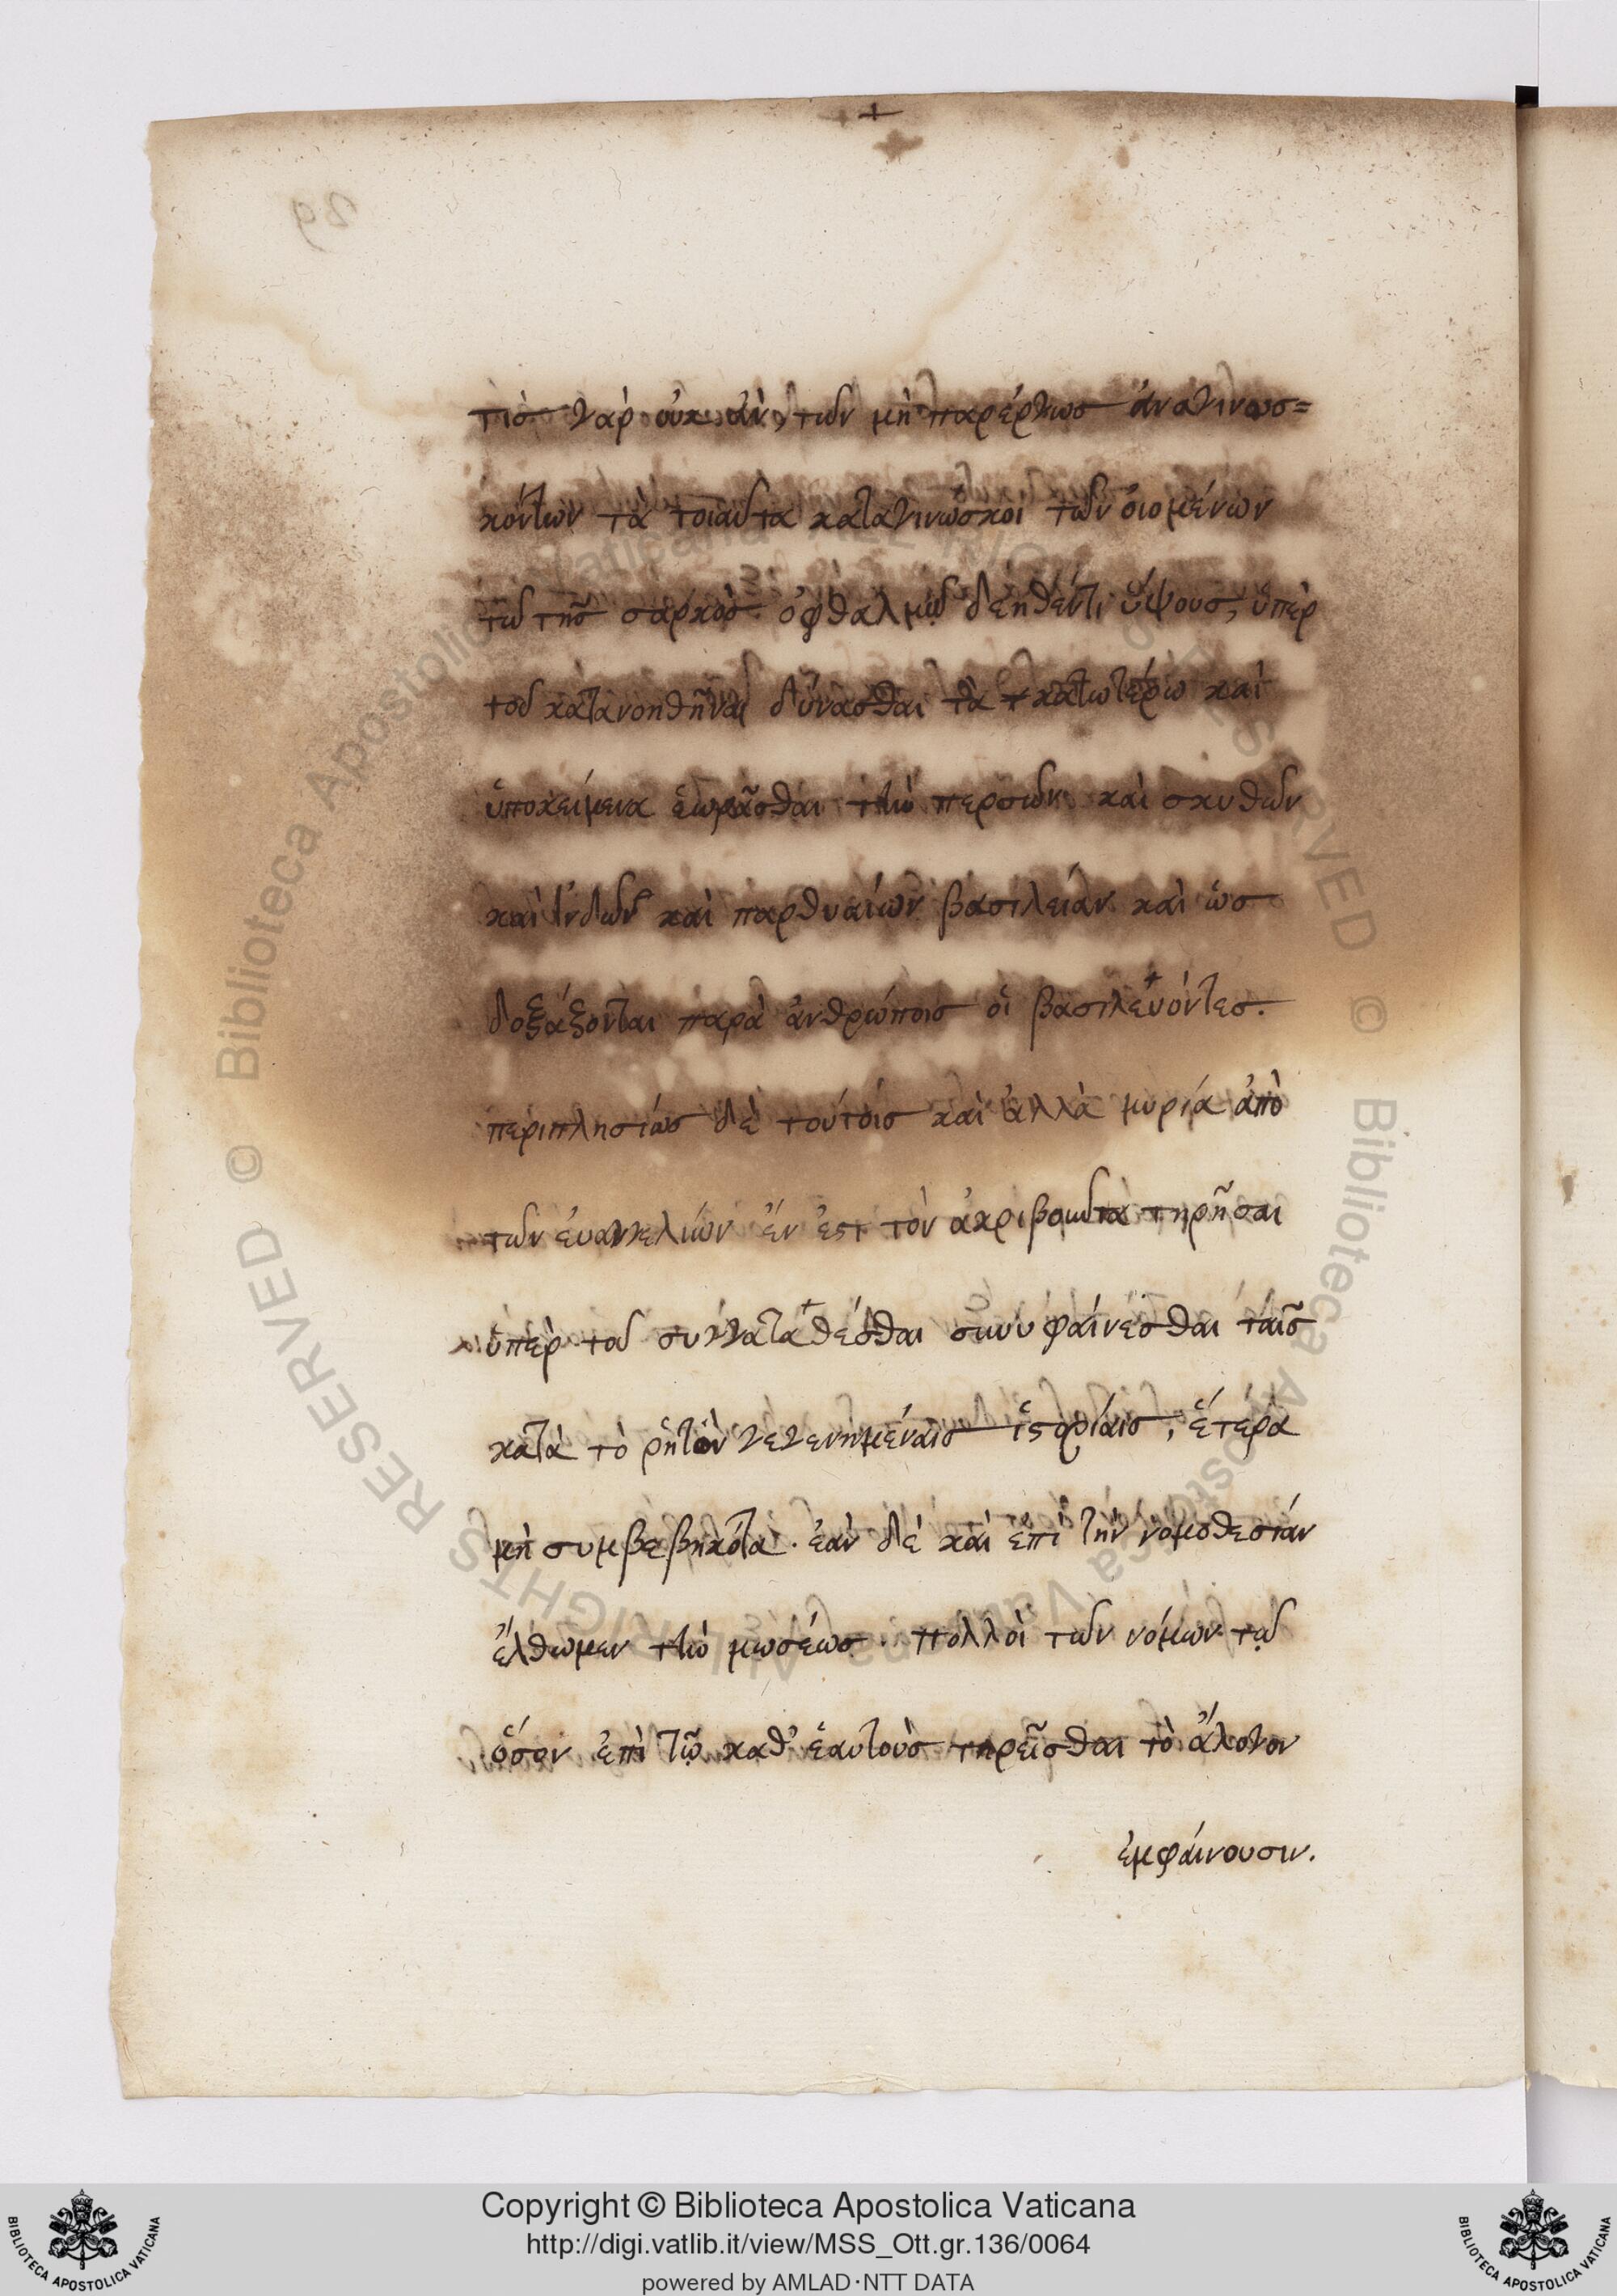 τὶσ γὰρ οὐκ ἀν, των μὴ παρέργωσ ἀναγινωσ=
κόντων τὰ τοιαῦτα καταγινώσκοι τῶν ὀιομένων
τῶ τῆσ σαρκὸσ ὀφθαλμῶ δεηθέντι ὕψουσ, ὑπὲρ
τοῦ κατανοηθῆναι δύνασθαι τὰ κατωτέρω καὶ
ὑποκείμενα ἑωρᾶσθαι τὴν περσῶν καὶ σκυθῶν
καὶ ἰνδῶν καὶ παρθυαίων βασιλείαν καὶ ὡσ
δοξάξονται παρὰ ἀνθρώποισ οἱ βασιλευόντεσ.
περιπλησίωσ δὲ τούτοισ καὶ ἀλλὰ μυρία ἀπὸ
τῶν ἐυαγγελίων ἐν ἐστ τὸν ἀκριβοῦντα τηρῆσαι
ὑπὲρ τοῦ συγκαταθέσθαι συνυφαίνεσθαι τάισ
κατὰ τὸ ῥητὸν γεγενημέναισ ἱστορίαισ, ἑτερα
μὴ συμβεβηκότα. ἐὰν δὲ καὶ ἐπὶ τὴν νομοθεσίαν
ἔλθωμεν τὴν μωσέωσ. πολλοὶ τῶν νόμων τῶ
ὅσον ἐπὶ τῶ καθ' ἑαυτοὺσ τηρεῖσθαι τὸ ἄλογον
ἐμφάινουσιν.
29
Copyright © Biblioteca Apostolica Vaticana
http://digi.vatlib.it/view/MSS_Ott.gr.136/0064
powered by AMLAD·NTT DATA